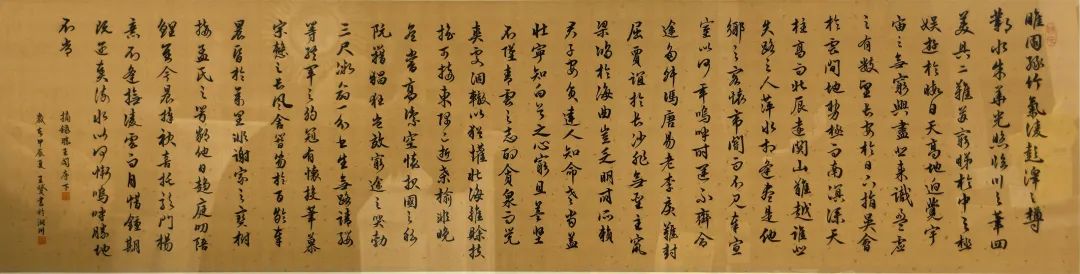 睢園綠竹氣凌彭澤之樽
鄴水朱華光照臨川之筆四
美具二難並窮睇於中極
娛遊於暇日天高地迥覺宇
宙之無窮興盡悲來識盈虛
之有數望長安於日下指吳會
於雲間地勢極而南溟深天
柱高而北辰遠關山難越誰悲
失路之人萍水相逢盡是他
鄉之客懷帝閽而不見奉宣
室以何年嗚呼時運不齊命
途多舛馮唐易老李廣難封
屈賈誼於長沙非無聖主竄
梁鴻於海曲豈乏明時所賴
君子安貧達人知命老當益
壯寧知白首之心窮且益堅
不墜青雲之志酌貪泉而覺
爽處涸轍以猶懽北海雖賒扶
搖可接東隅已逝桑榆非晚
孟嘗高潔空懷報國之
阮籍猖狂豈效窮途之哭勃
三尺微命一介書生無路請纓
等終軍之弱冠有懷投筆慕
宗慤之長風舍簪笏於百齡奉
晨昏於萬里非謝家之寶樹
接孟氏之芳鄰他日趨庭叨陪
鯉對今晨捧袂喜托龍門楊
意不逢撫凌雲自惜鍾期
既遇奏流水以何慚嗚呼勝地
不常
摘錄滕王閣序
歲在甲辰夏王書於湖州